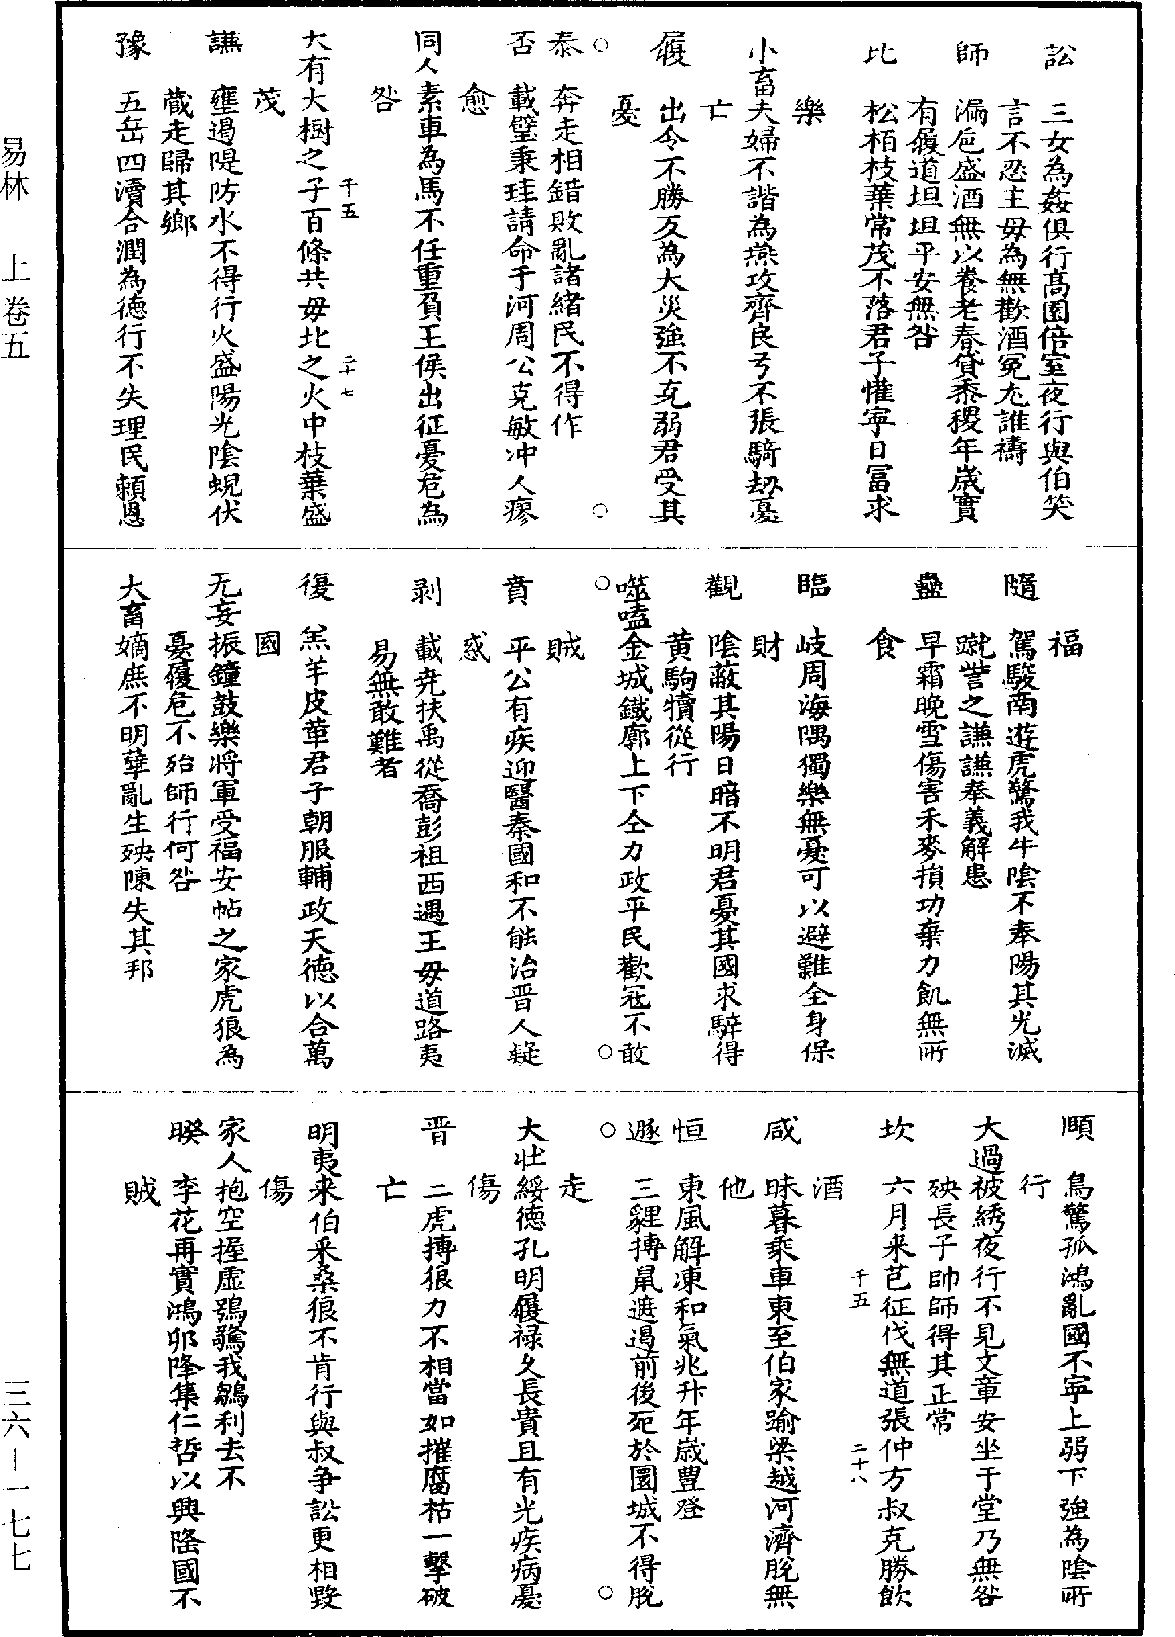 訟　三女為姦俱行高園倍室夜行與伯笑
言不忍主毋為無歡酒冤尤誰禱
師　漏卮盛酒無以養老春貸黍稷年歲實
有履道坦坦平安無咎
比　松栢枝葉常茂不落君子惟寧日冨求
樂
小畜夫婦不諧為燕攻齊良弓不張騎劫憂
亡
履　出令不勝反為大災強不克弱君受其
憂
泰　奔走相錯敗亂諸緒民不得作
否　載璧秉珪請命于河周公克敏冲人瘳
愈
同人素車為馬不任重負王侯出征憂危為
咎
大有大樹之子百條共毋北之火中枝葉盛
茂
謙　壅遏隄防水不得行火盛陽光陰蜺伏
蔵走歸其鄉
豫　五岳四瀆合潤為德行不失理民賴恩
福
隨　駕駿南遊虎驚我牛陰不奉陽其光滅
蹴訾之謙謙奉義解患
蠱　早霜晚雪傷害禾麥損功棄力飢無所
食
臨　岐周海隅獨樂無憂可以避難全身保
財
觀　陰蔽其陽日暗不明君憂其國求騂得
黄駒犢從行
噬嗑金城鐵廓上下仝力政平民歡冦不敢
賊
賁　平公有疾迎醫秦國和不能治晋人疑
惑
剥　載尭扶禹從喬彭祖西遇王毋道路夷
易無敢難者
復　羔羊皮革君子朝服輔政天德以合萬
國
无妄振鐘鼓樂將軍受福安帖之家虎狼為
憂履危不殆師行何咎
大畜嫡庶不明孽亂生殃陳失其邦
頤　鳥驚孤鴻亂國不寧上弱下強為陰所
行
大過被綉夜行不見文章安坐于堂乃無咎
殃長子帥師得其正常
坎　六月来芑征伐無道張仲方叔克勝飲
酒
咸　昧暮乘車東至伯家踰梁越河濟脫無
他
恒　東風解凍和氣兆升年歲豐登
遯　三貍搏鼠遮遏前後死於圜城不得脫
走
大壯綏德孔明履禄久長貴且有光疾病憂
傷
晋　二虎搏狼力不相當如摧腐枯一擊破
亡
明夷来伯采桑狼不肯行與叔争訟更相毀
傷
家人抱空握虛鴞驚我鶵利去不
睽　李花再實鴻卵降集仁哲以興隆國不
賊
千五
二十七
千五
二十八
易林　上卷五
三六－一七七